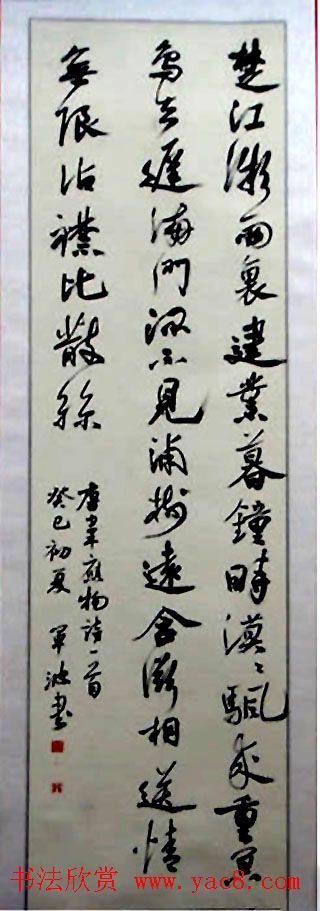 楚江微雨裏建業暮鐘時漠々颿來重冥
鳥去遲海門深不見浦樹遠含滋相送情
無限沾襟比散絲
唐韋應物詩一首
癸巳初夏 軍波書
书法欣赏 www.yac8.com